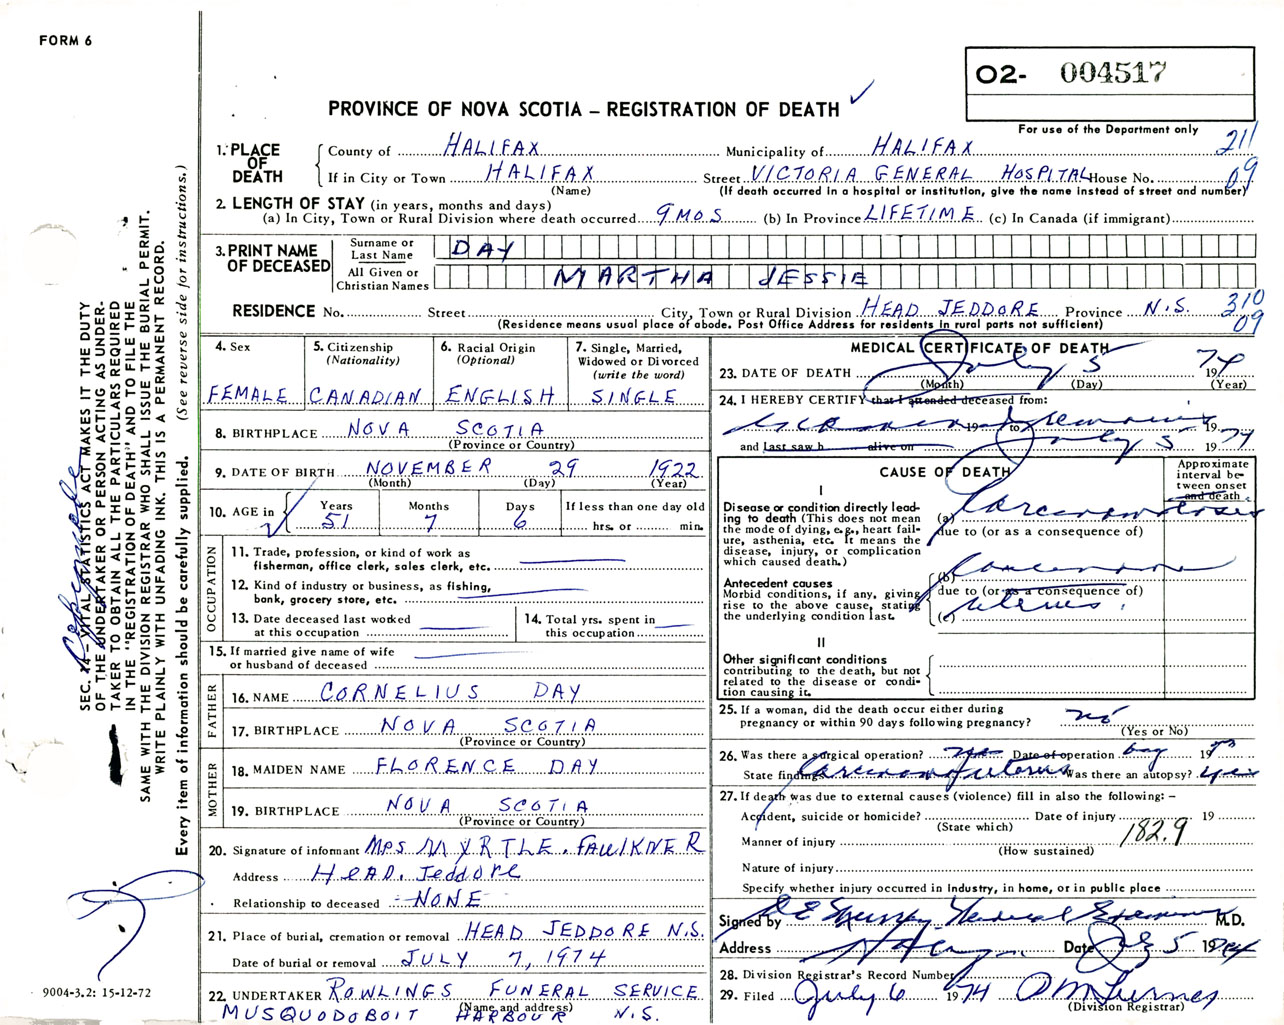 FORM 6
O2- 004517
PROVINCE OF NOVA SCOTIA – REGISTRATION OF DEATH ✓
For use of the Department only
211
09
1. PLACE OF DEATH
County of HALIFAX Municipality of HALIFAX
If in City or Town HALIFAX Street VICTORIA GENERAL HOSPITAL House No.
(Name) (If death occurred in a hospital or institution, give the name instead of street and number)
2. LENGTH OF STAY (in years, months and days)
(a) In City, Town or Rural Division where death occurred 9 MOS (b) In Province LIFETIME (c) In Canada (if immigrant)
3. PRINT NAME OF DECEASED
Surname or Last Name DAY
All Given or Christian Names MARTHA JESSIE
RESIDENCE No. Street City, Town or Rural Division HEAD JEDDORE Province N.S. 310
(Residence means usual place of abode. Post Office Address for residents in rural parts not sufficient) 09
4. Sex FEMALE
5. Citizenship (Nationality) CANADIAN
6. Racial Origin (Optional) ENGLISH
7. Single, Married, Widowed or Divorced (write the word) SINGLE
8. BIRTHPLACE NOVA SCOTIA
(Province or Country)
9. DATE OF BIRTH NOVEMBER 29 1922
(Month) (Day) (Year)
10. AGE in Years Months Days If less than one day old
51 7 6 hrs. or min.
OCCUPATION
11. Trade, profession, or kind of work as
fisherman, office clerk, sales clerk, etc.
12. Kind of industry or business, as fishing,
bank, grocery store, etc.
13. Date deceased last worked
at this occupation
14. Total yrs. spent in
this occupation
15. If married give name of wife
or husband of deceased
FATHER
16. NAME CORNELIUS DAY
17. BIRTHPLACE NOVA SCOTIA
(Province or Country)
MOTHER
18. MAIDEN NAME FLORENCE DAY
19. BIRTHPLACE NOVA SCOTIA
(Province or Country)
20. Signature of informant MRS MYRTLE. FAULKNER
Address HEAD. Jeddore
Relationship to deceased NONE
21. Place of burial, cremation or removal HEAD JEDDORE N.S.
Date of burial or removal JULY 7, 1974
22. UNDERTAKER ROWLINGS FUNERAL SERVICE
(Name and address)
MUSQUODOBOIT HARBOUR N.S.
MEDICAL CERTIFICATE OF DEATH
23. DATE OF DEATH July 5 1974
(Month) (Day) (Year)
24. I HEREBY CERTIFY that I attended deceased from:
19 to
and last saw h alive on July 5 1974
CAUSE OF DEATH
Approximate interval between onset and death
I
Disease or condition directly leading to death (This does not mean the mode of dying, e.g., heart failure, asthenia, etc. It means the disease, injury, or complication which caused death.)
(a) Carcinomatosis
due to (or as a consequence of)
Antecedent causes
Morbid conditions, if any, giving rise to the above cause, stating the underlying condition last.
(b) Carcinoma
due to (or as a consequence of)
(c) uterus.
II
Other significant conditions
contributing to the death, but not related to the disease or condition causing it.
25. If a woman, did the death occur either during
pregnancy or within 90 days following pregnancy? no
(Yes or No)
26. Was there a surgical operation? yes Date of operation 19
State findings Carcinoma of uterus Was there an autopsy? yes
27. If death was due to external causes (violence) fill in also the following: –
Accident, suicide or homicide? Date of injury 19
(State which)
Manner of injury 182.9
(How sustained)
Nature of injury
Specify whether injury occurred in Industry, in home, or in public place
Signed by Murray Medical Examiner M.D.
Address Date July 5 1974
28. Division Registrar's Record Number
29. Filed July 6 1974
(Division Registrar)
SEC. 14 – VITAL STATISTICS ACT MAKES IT THE DUTY
OF THE UNDERTAKER OR PERSON ACTING AS UNDER-
TAKER TO OBTAIN ALL THE PARTICULARS REQUIRED
IN THE "REGISTRATION OF DEATH" AND TO FILE THE
SAME WITH THE DIVISION REGISTRAR WHO SHALL ISSUE THE BURIAL PERMIT.
WRITE PLAINLY WITH UNFADING INK. THIS IS A PERMANENT RECORD.
Every item of information should be carefully supplied. (See reverse side for instructions.)
9004-3.2: 15-12-72